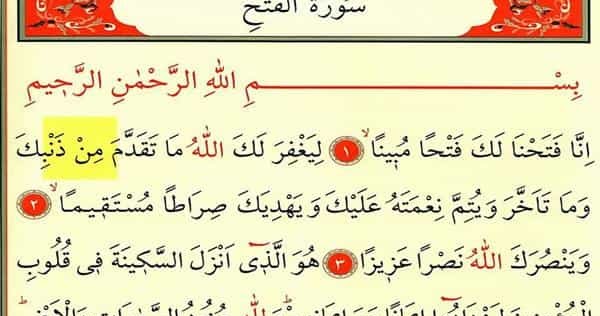 سُورَةُ الْفَتْحِ
بِسْمِ اللهِ الرَّحْمٰنِ الرَّح۪يمِ
اِنَّا فَتَحْنَا لَكَ فَتْحًا مُب۪ينًاۙ ﴿١﴾ لِيَغْفِرَ لَكَ اللّٰهُ مَا تَقَدَّمَ مِنْ ذَنْبِكَ
وَمَا تَاَخَّرَ وَيُتِمَّ نِعْمَتَهُ عَلَيْكَ وَيَهْدِيَكَ صِرَاطًا مُسْتَق۪يمًاۙ ﴿٢﴾
وَيَنْصُرَكَ اللّٰهُ نَصْرًا عَز۪يزًا ﴿٣﴾ هُوَ الَّذ۪ٓي اَنْزَلَ السَّك۪ينَةَ ف۪ي قُلُوبِ